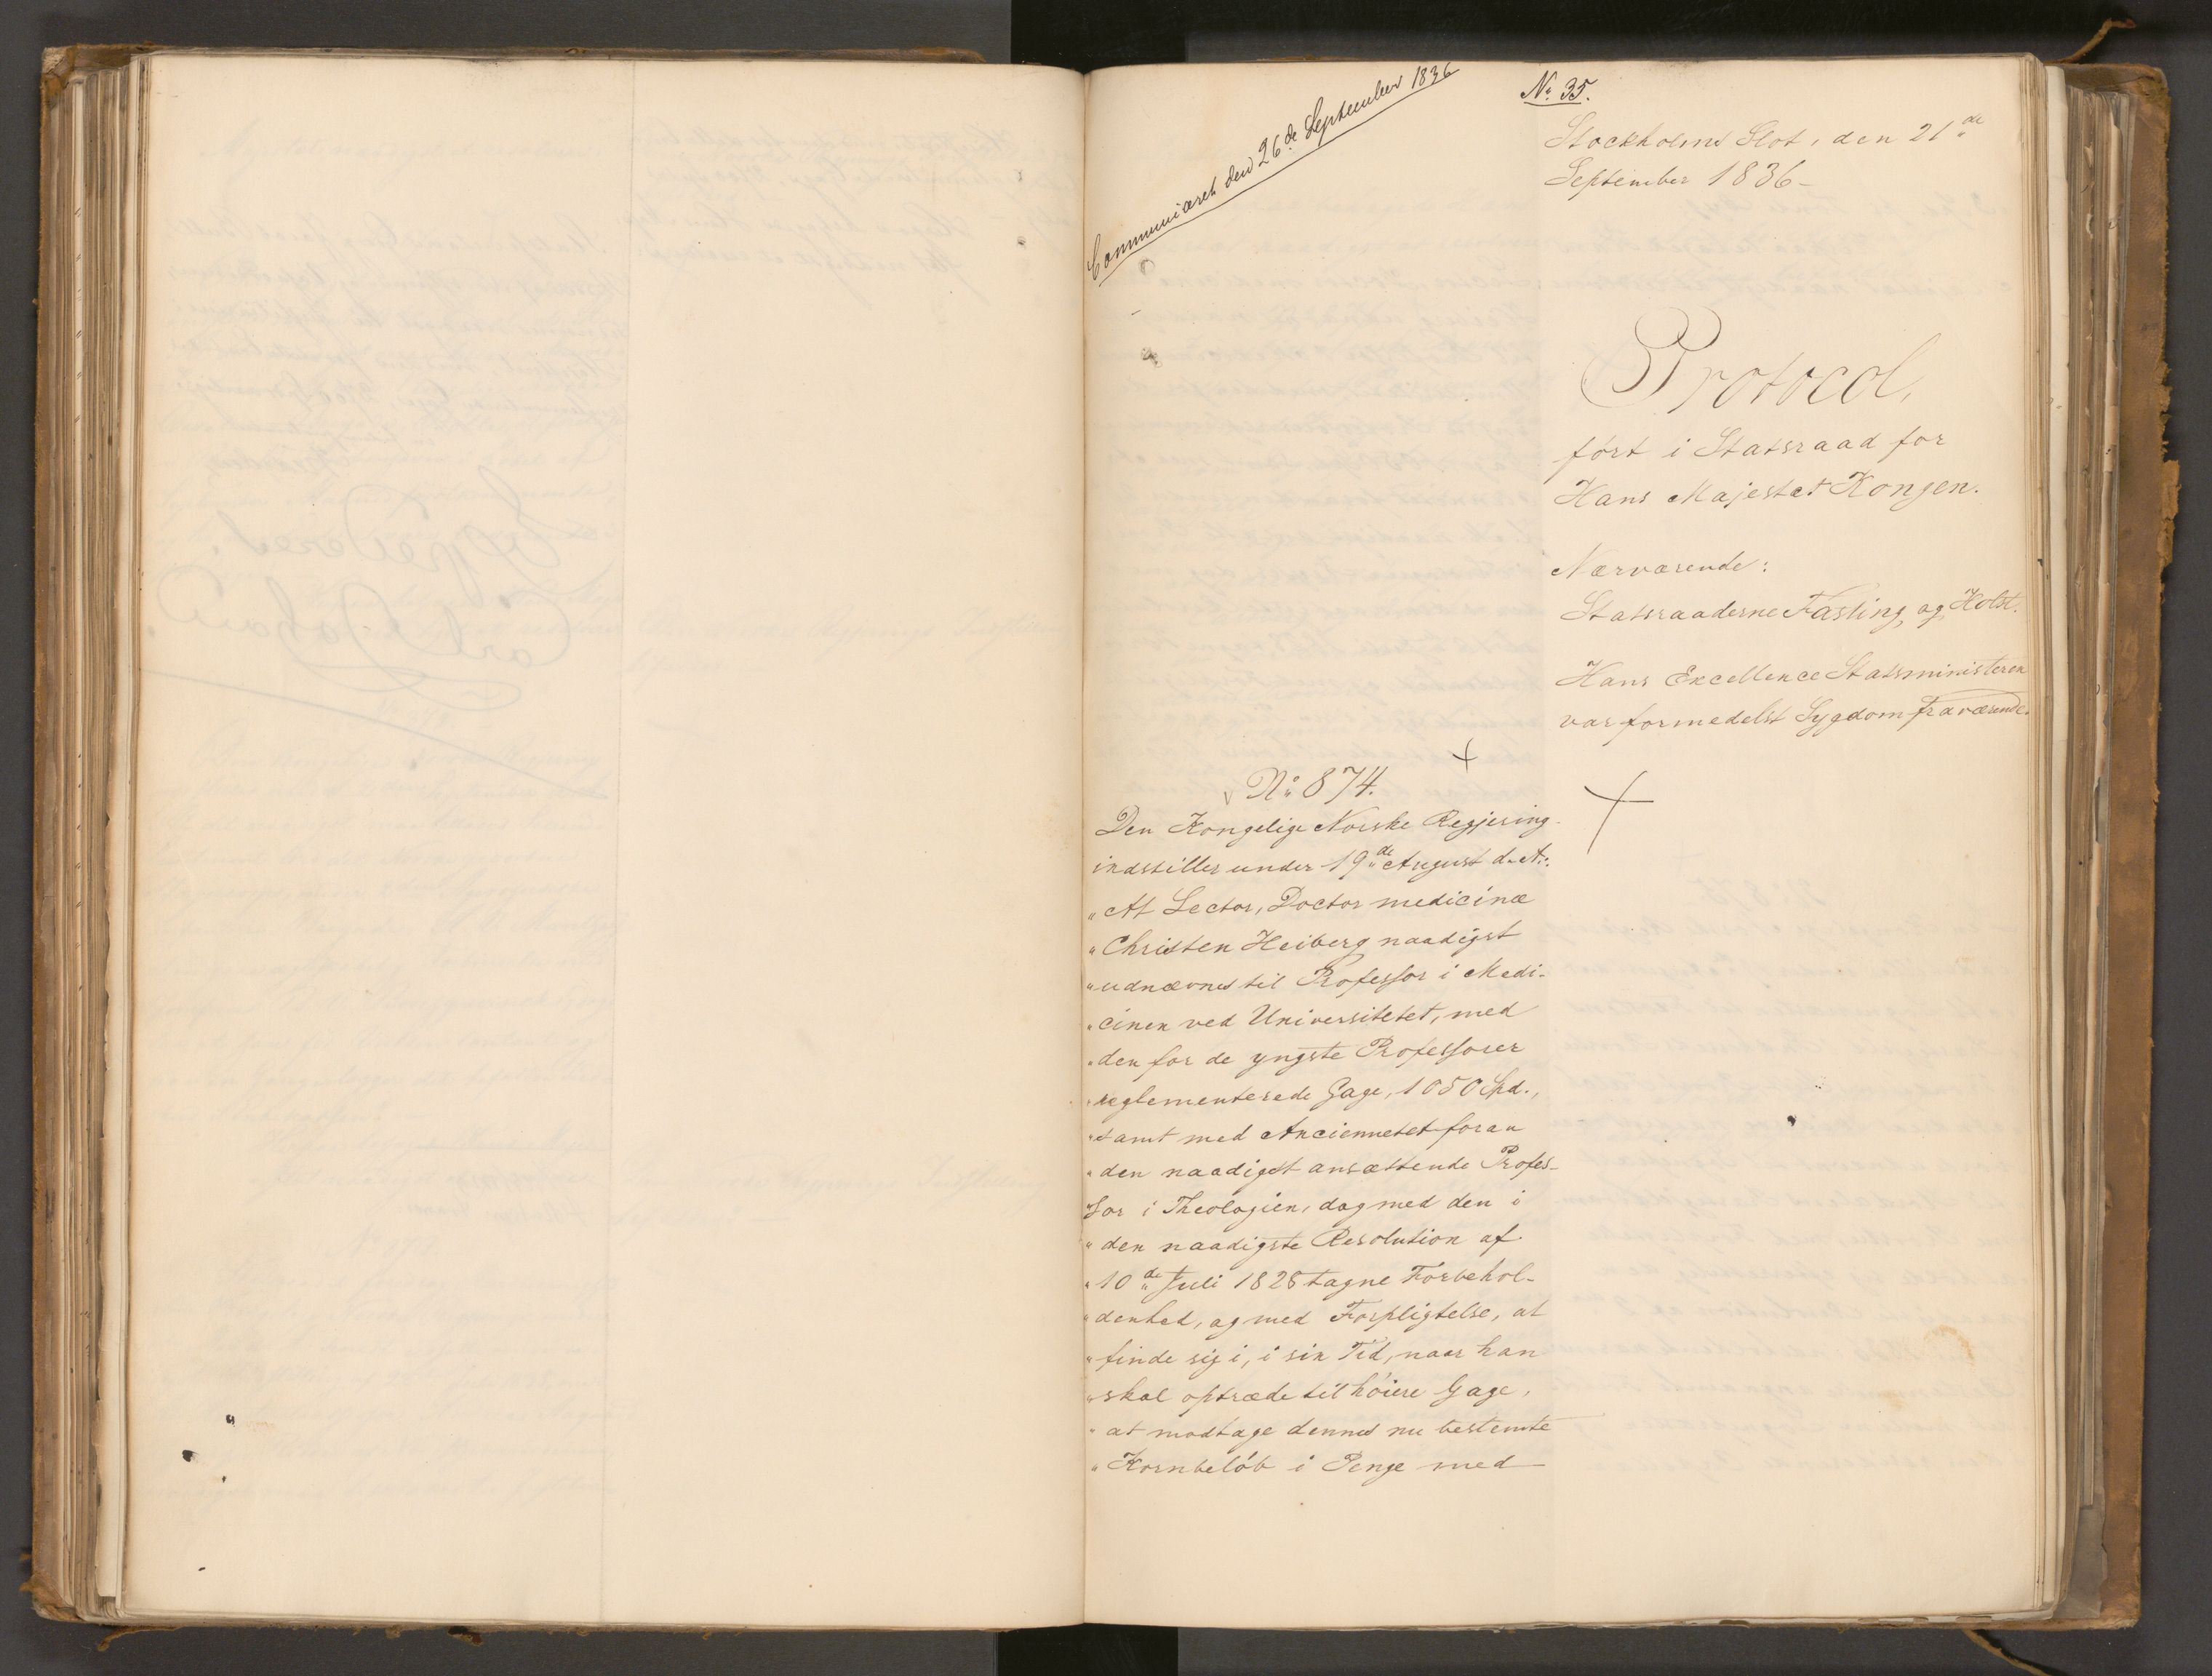 Communiceret den 26de September 1836
No. 35.
Stockholms Slot, den 21de
September 1836-
Protocol,
ført i Statsraad for
Hans Majestæt Kongen.
Nærværende:
Statsraaderne Fasting, og Holst.
Hans Excellence Statsministeren
var formedelst Sygdom fraværende.
No. 874.
Den Kongelige Norske Regjering
indstiller under 19de August d. A.:
"At Lector, Doctor medicinæ
"Christen Heiberg naadigst
"udnævnes til Professor i Medi-
"cinen ved Universitetet, med
"den for de yngste Professorer
"reglementerede Gage, 1050 Spd.,
"samt med Anciennetet foran
"den naadigst ansættende Profes-
sor i Theologien, dog med den i
"den naadigste Resolution af
"10de Juli 1828 tagne Forbehol-
"denhed, og med Forpligtelse, at
"finde sig i, i sin Tid, naar han
"skal optræde til høiere Gage,
"at modtage dennes nu bestemte
"Kornbeløb i Penge med